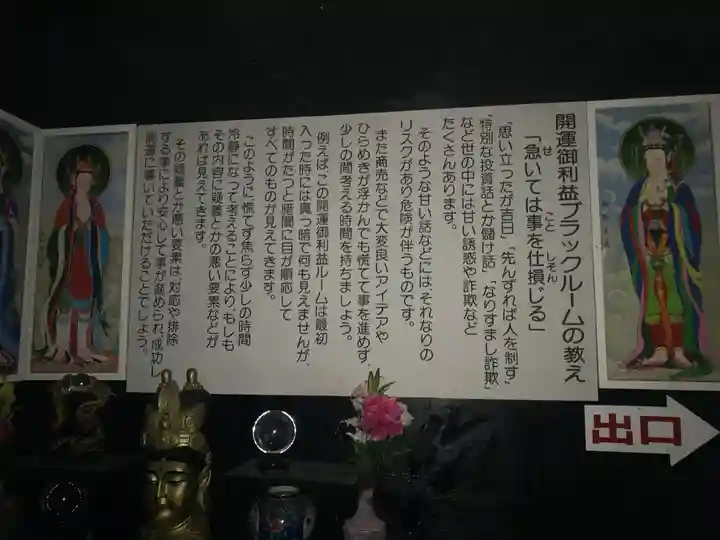 開運御利益ブラックルームの教え
「急いては事を仕損じる」
せ こと しそん
「思い立ったが吉日」「先んずれば人を制す」
「特別な投資話とか儲け話」「なりすまし詐欺」
など世の中には甘い誘惑や詐欺など
たくさんあります。
そのような甘い話などには、それなりの
リスクがあり危険が伴うものです。
また商売などで大変良いアイデアや
ひらめきが浮かんでも慌てて事を進めず、
少しの間考える時間を持ちましょう。
例えば、この開運御利益ルームは最初
入った時には真っ暗で何も見えませんが、
時間がたつと暗闇に目が順応して
すべてのものが見えてきます。
このように慌てず焦らず少しの時間
冷静になって考えることにより、もしも
その内容に疑義とかの悪い要素などが
あれば見えてきます。
その疑義とか悪い要素は、対応や排除
する事により安心して事が進められ、成功し
開運に導いていただけることでしょう。
出口